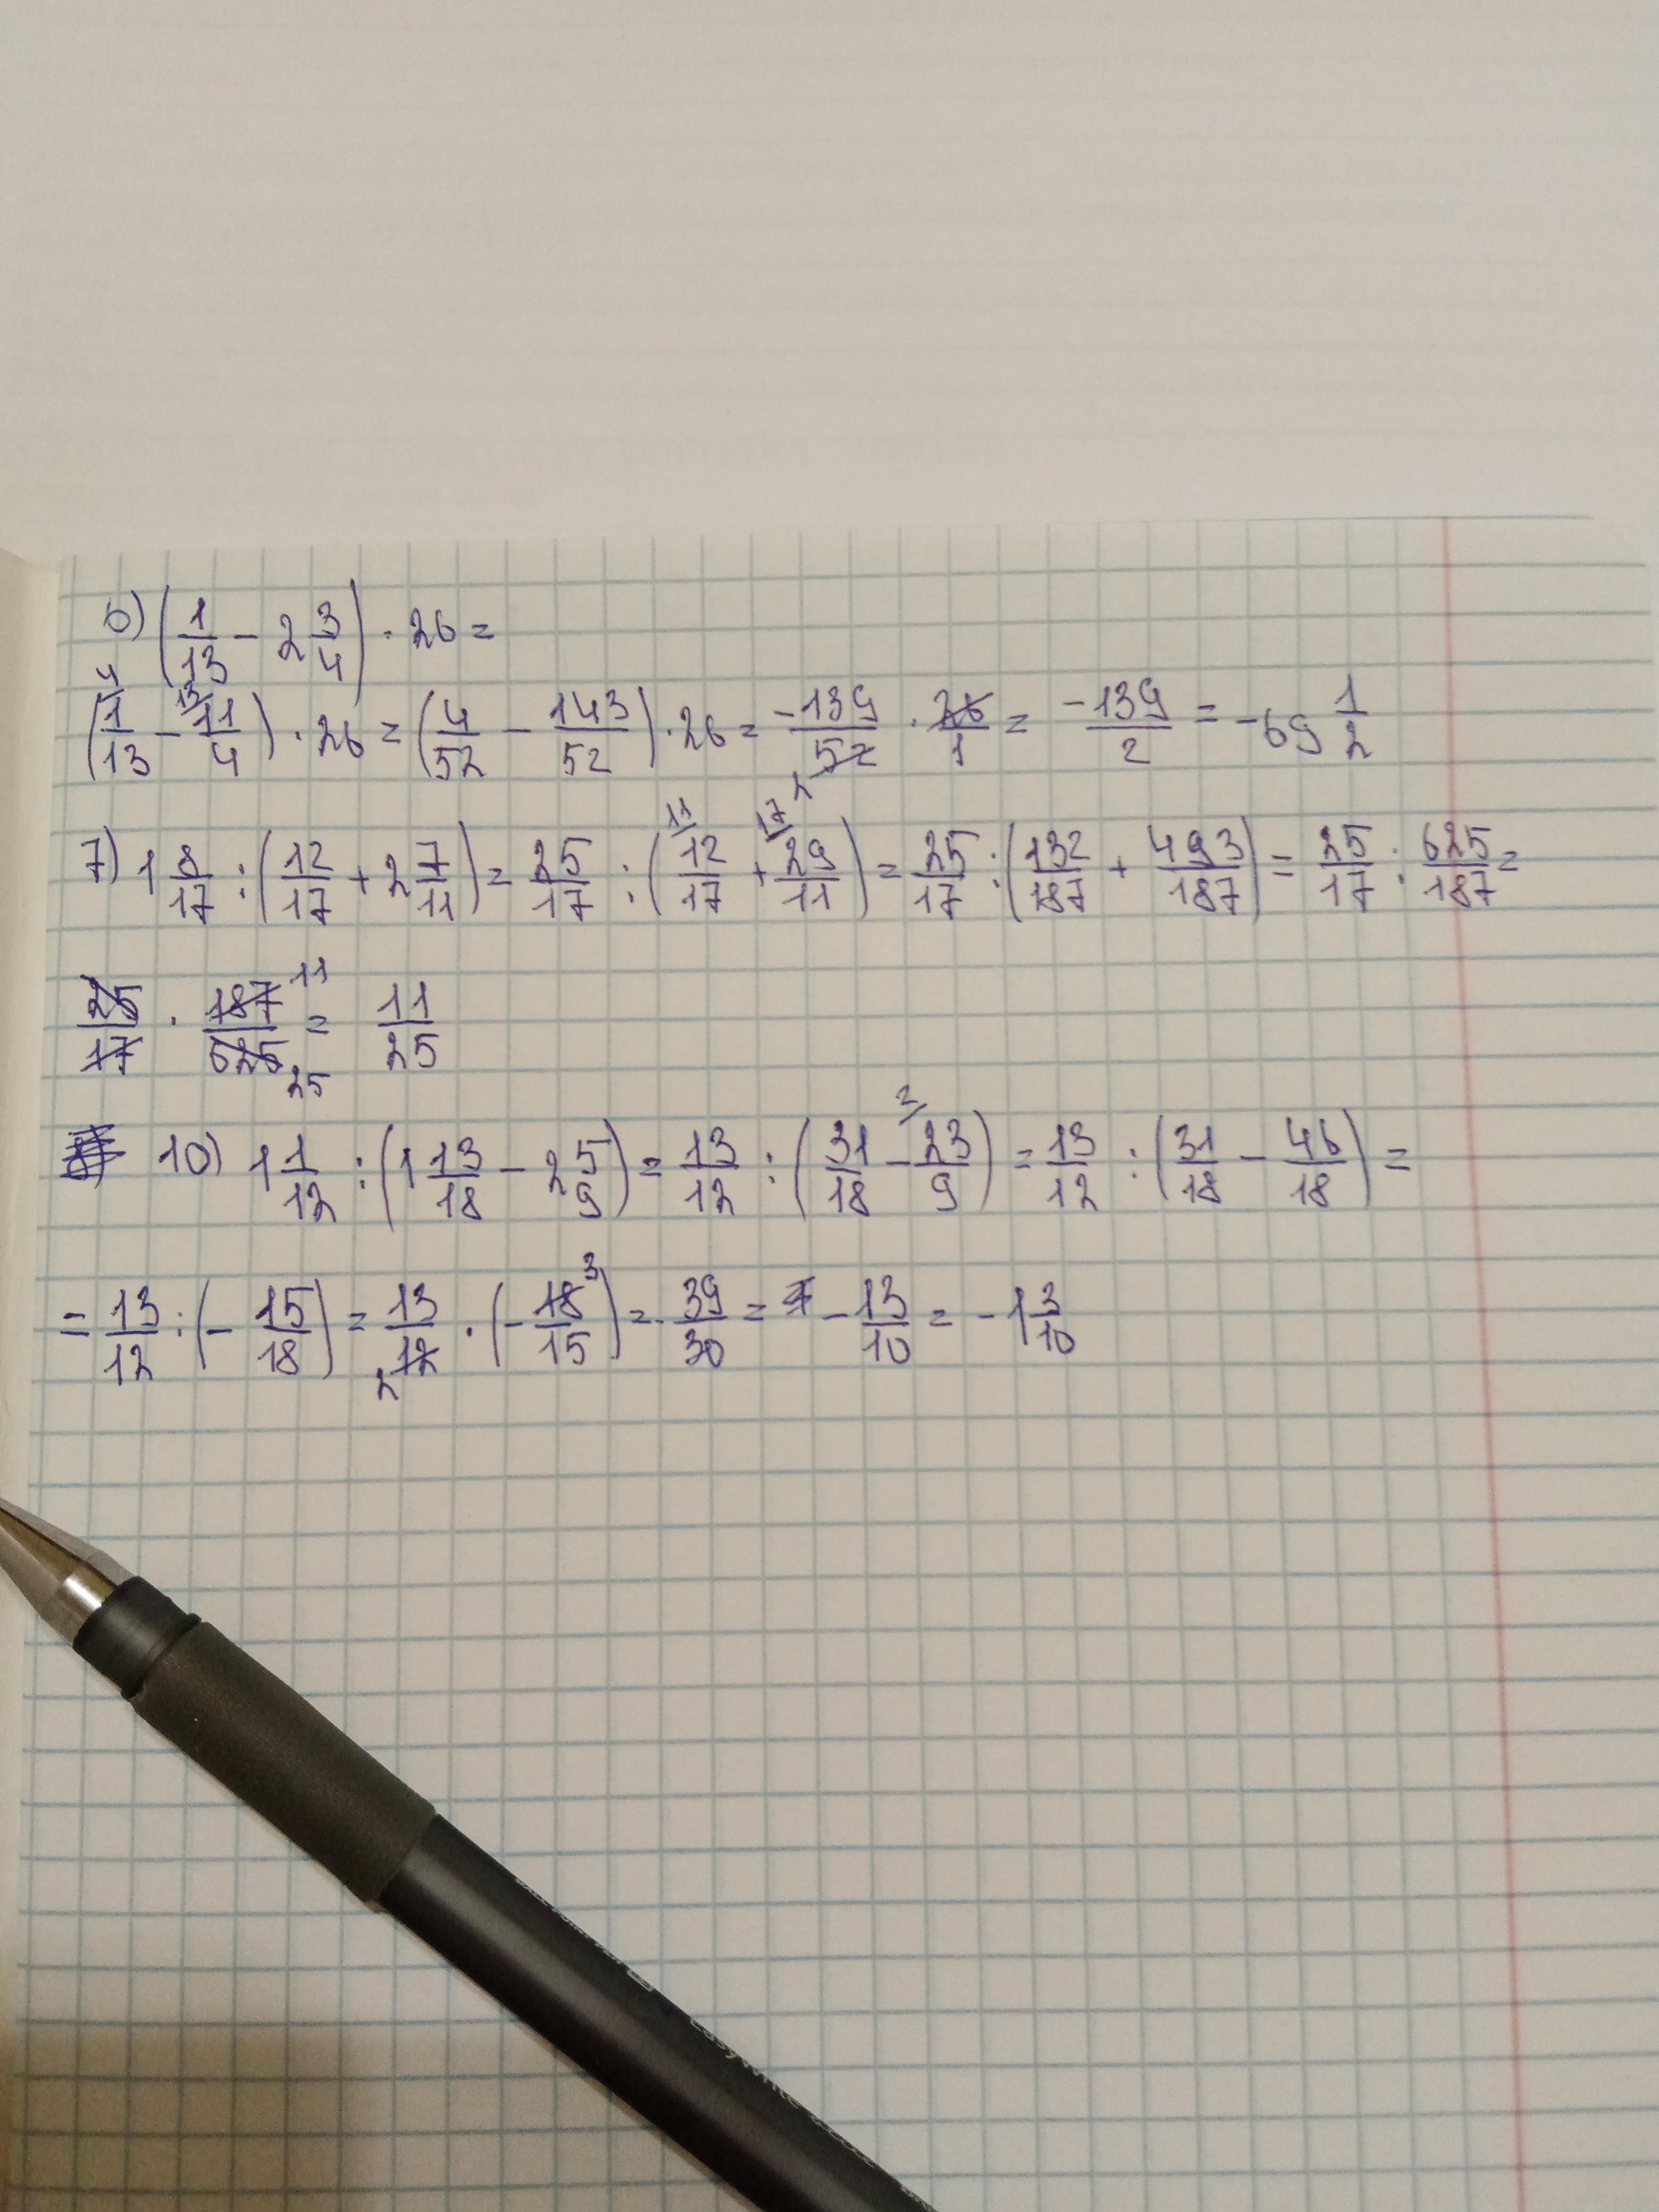 6) (1/13 - 2 3/4) · 26 =
(1/13 - 11/4) · 26 = (4/52 - 143/52) · 26 = -139/52 · 26/1 = -139/2 = -69 1/2
7) 1 8/17 : (12/17 + 2 7/11) = 25/17 : (12/17 + 29/11) = 25/17 : (132/187 + 493/187) = 25/17 : 625/187 =
25/17 · 187/625 = 11/25
10) 1 1/12 : (1 13/18 - 2 5/9) = 13/12 : (31/18 - 23/9) = 13/12 : (31/18 - 46/18) =
= 13/12 : (- 15/18) = 13/12 · (- 18/15) = - 39/30 = - 13/10 = - 1 3/10